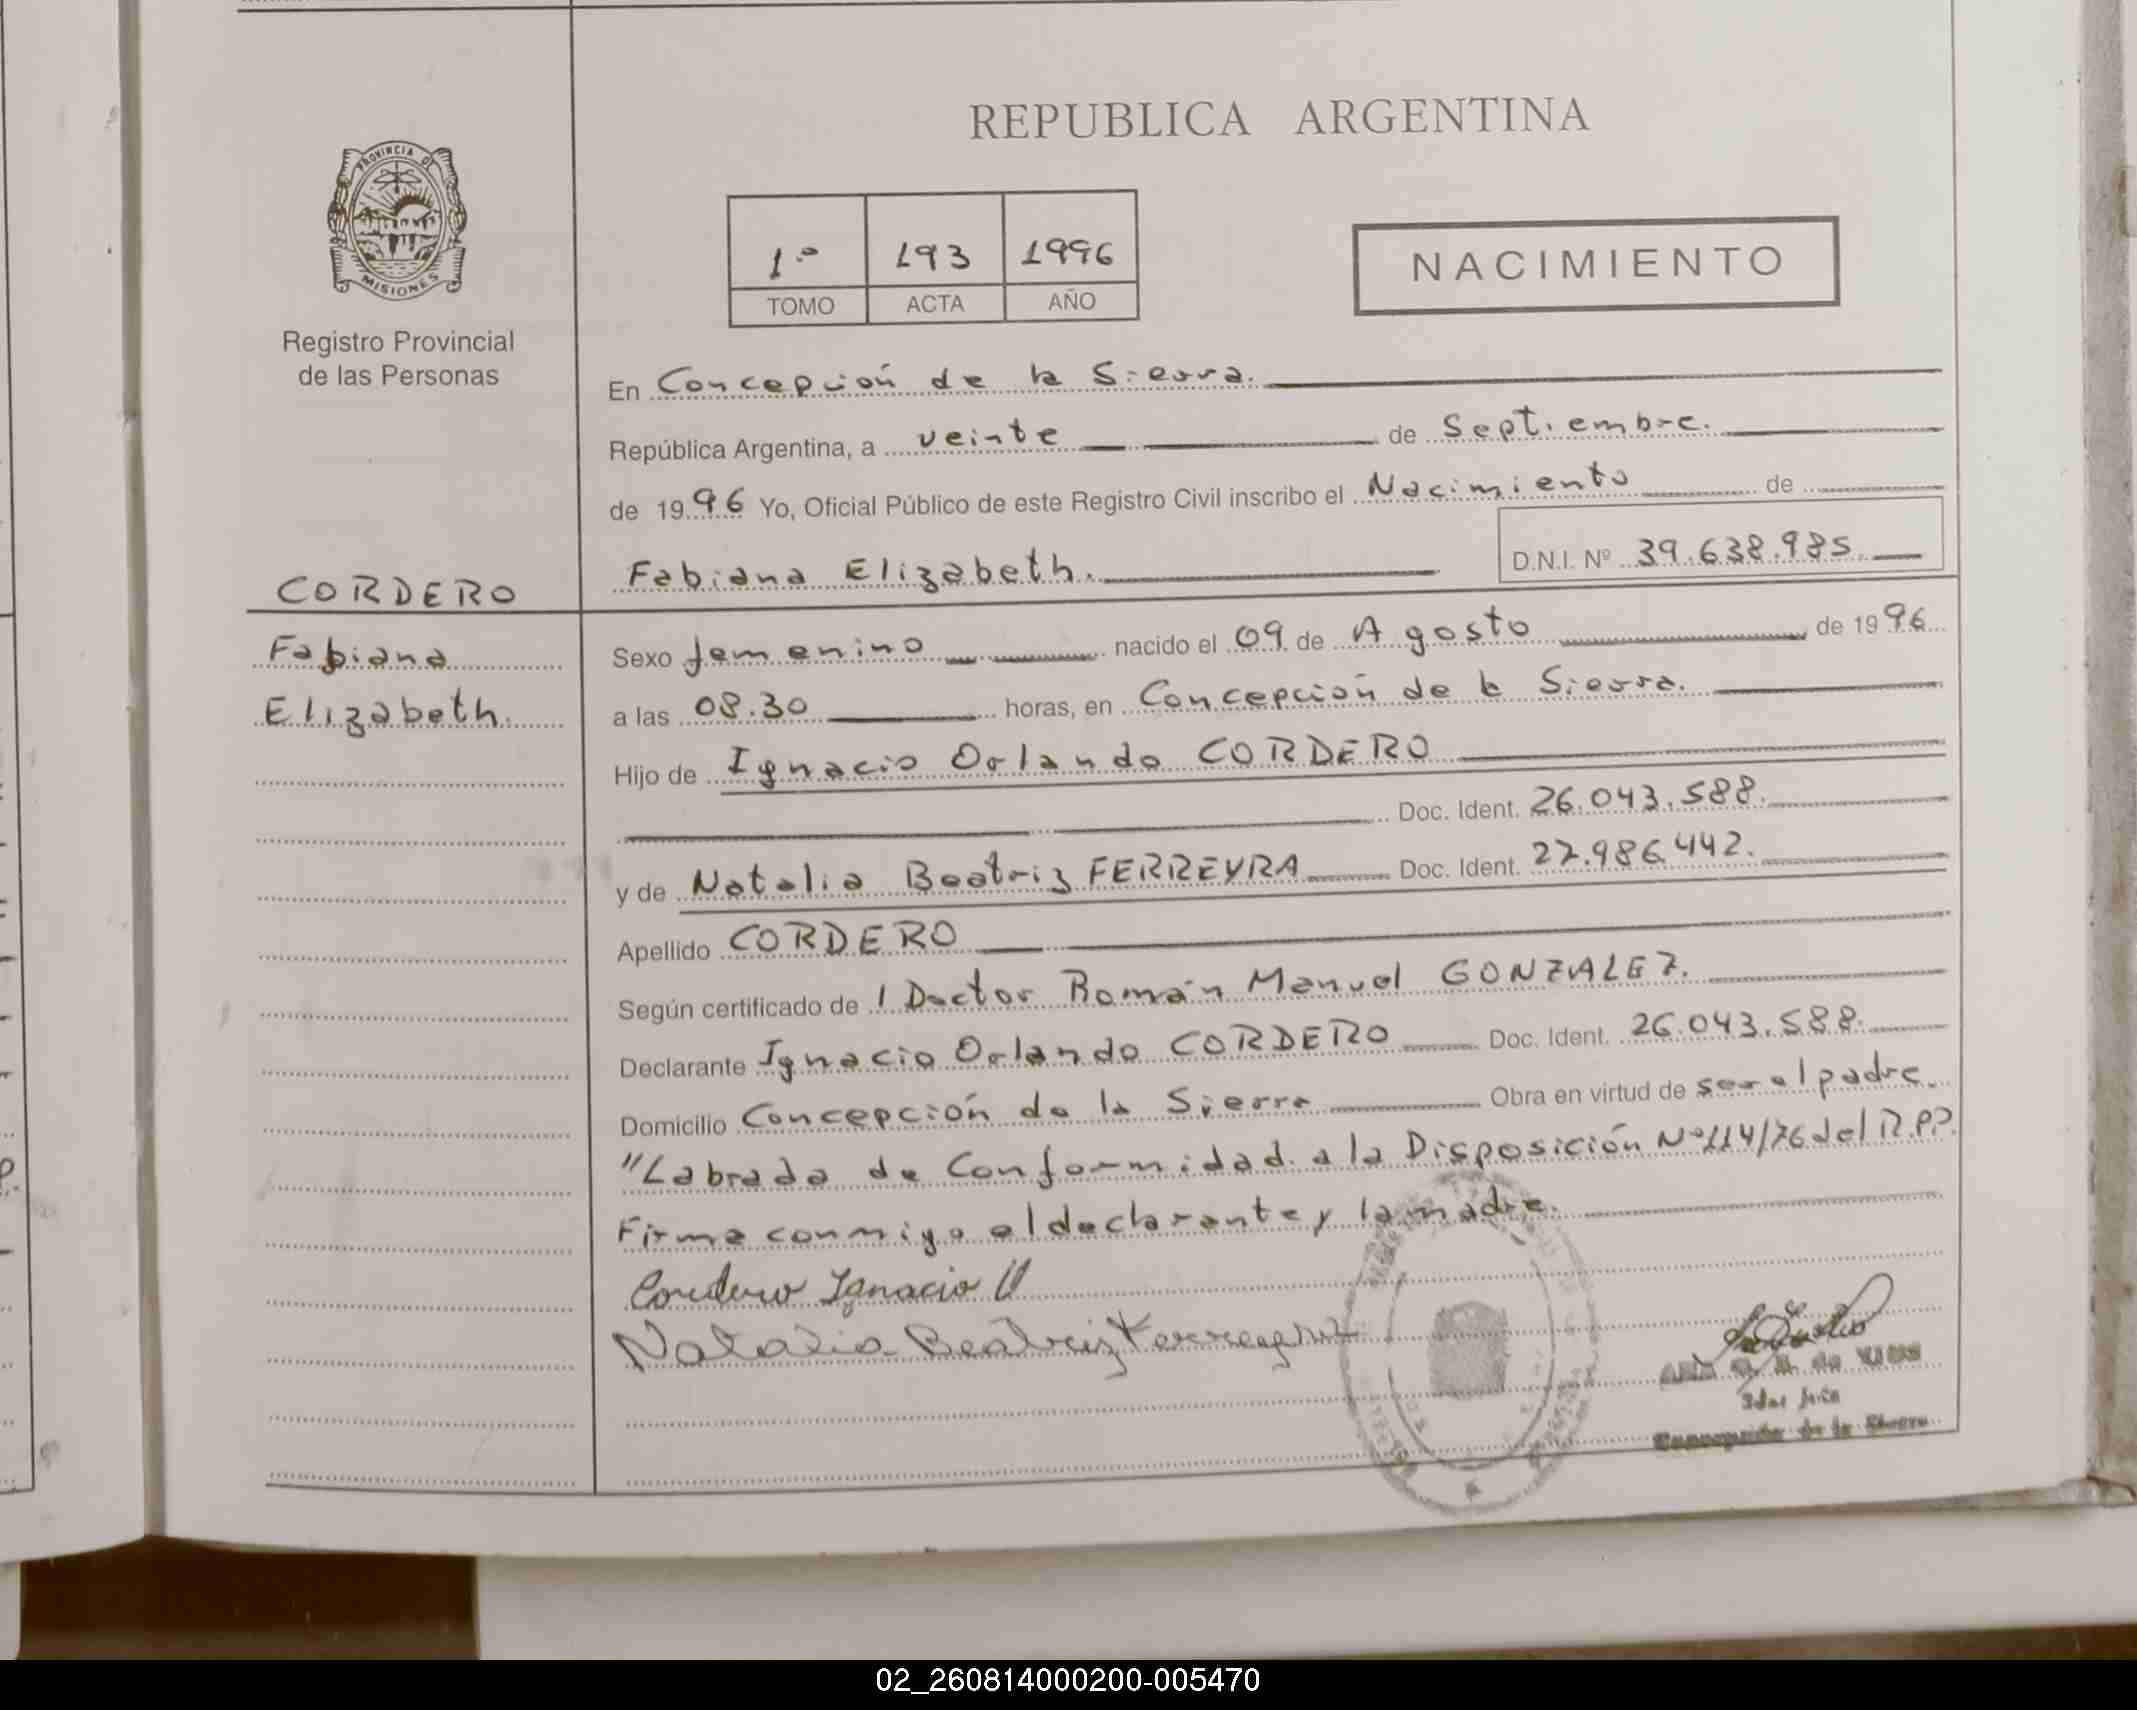 REPUBLICA ARGENTINA
PROVINCIA DE
MISIONES
Registro Provincial
de las Personas
1º 193 1996
TOMO ACTA AÑO
NACIMIENTO
En Concepción de la Sierra.
República Argentina, a veinte de Septiembre.
de 1996 Yo, Oficial Público de este Registro Civil inscribo el Nacimiento de
Fabiana Elizabeth. D.N.I. Nº 39.638.985.
CORDERO
Fabiana
Elizabeth.
Sexo femenino nacido el 09 de Agosto de 1996
a las 08.30 horas, en Concepción de la Sierra.
Hijo de Ignacio Orlando CORDERO
Doc. Ident. 26.043.588.
y de Natalia Beatriz FERREYRA Doc. Ident. 27.986.442.
Apellido CORDERO
Según certificado de l Doctor Román Manuel GONZALEZ.
Declarante Ignacio Orlando CORDERO Doc. Ident. 26.043.588.
Domicilio Concepción de la Sierra Obra en virtud de ser el padre.
"Labrada de Conformidad a la Disposición Nº 114/76 del R.P.P.
Firma conmigo el declarante y la madre.
Cordero Ignacio O
Natalia Beatriz Ferreyra
Concepción de la Sierra
02_260814000200-005470